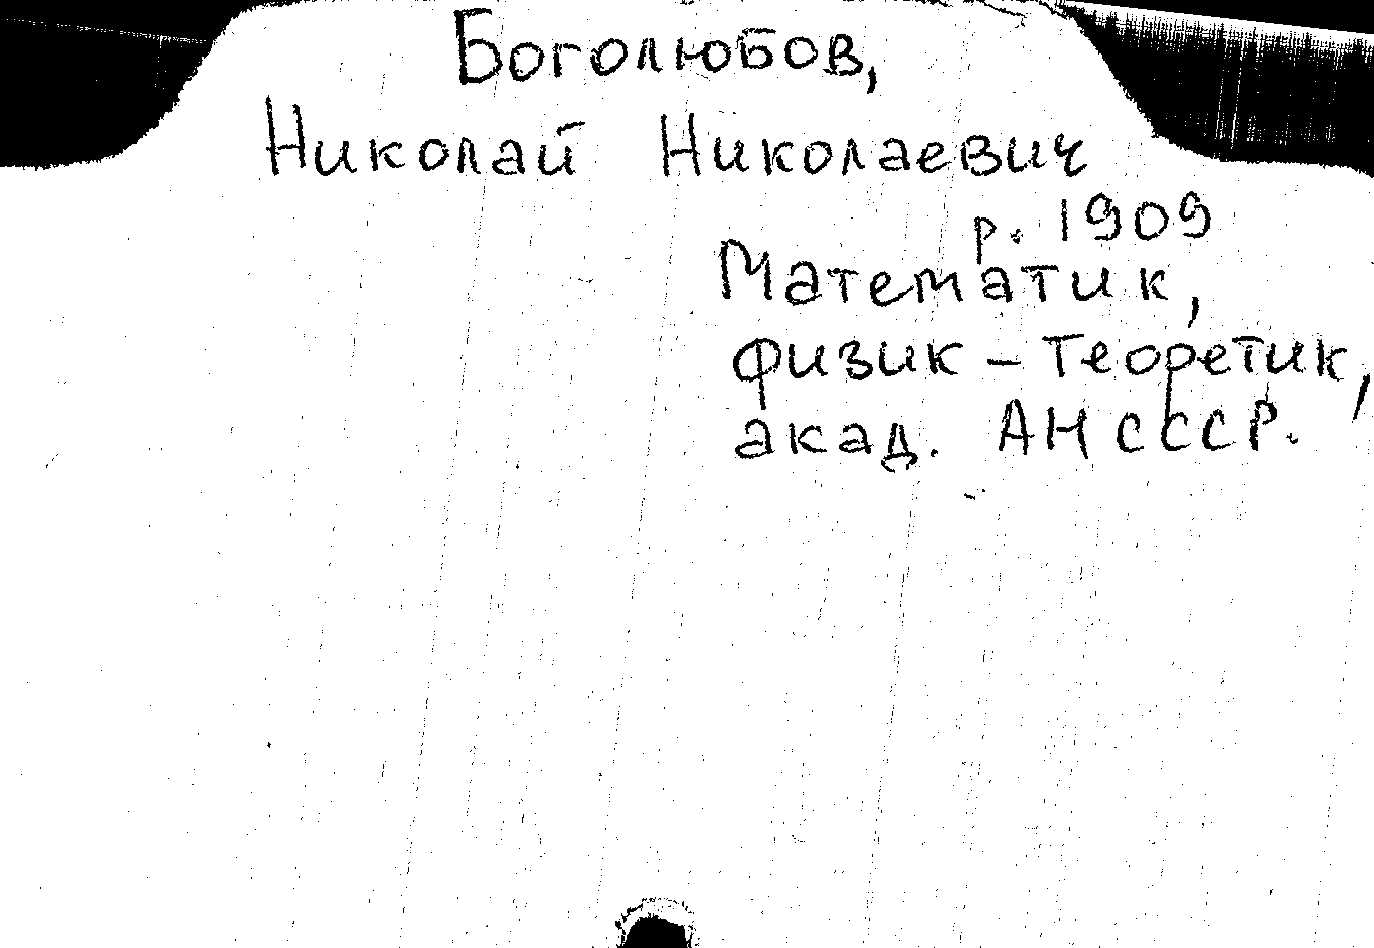 Боголюбов,
Николай Николаевич
р. 1909
Математик,
физик - теоретик,
акад. АН СССР.